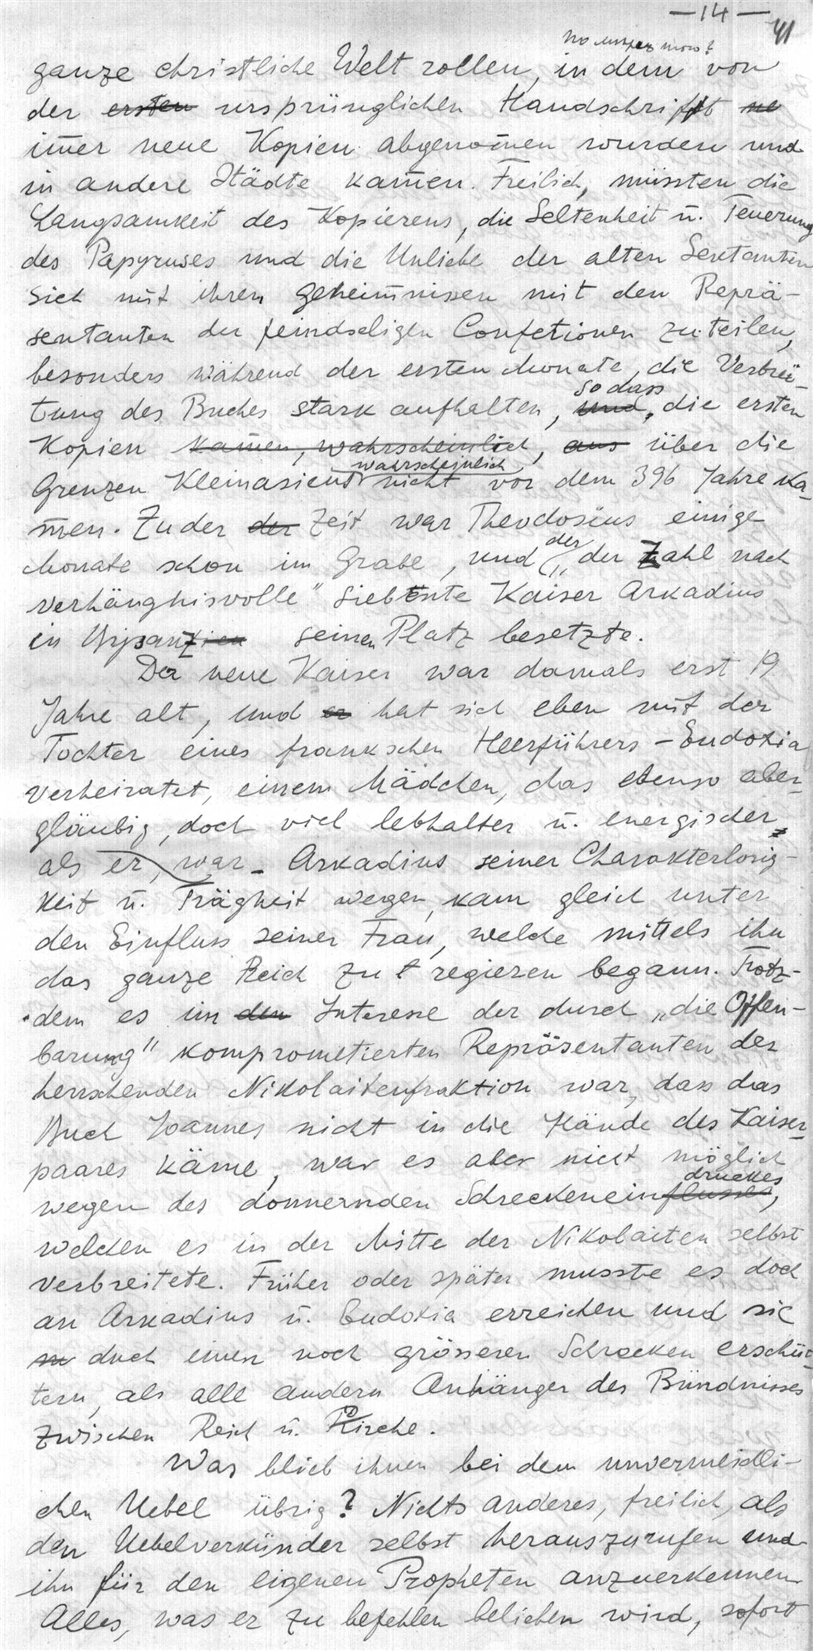 — 14 —
41
ganze christliche Welt rollen, in dem von
der ersten ursprünglichen Handschrift ne
im̄er neue Kopien abgenom̄en wurden und
in andere Städte kam̄en. Freilich, müssten die
Langsamkeit des Kopierens, die Seltenheit u. Teuerung
des Papyruses und die Unliebe der alten Sextanten
sich mit ihren geheimnissen mit den Reprä-
sentanten der feindseligen Confetionen zu teilen,
besonders während der ersten Monate, die Verbrei-
so dass
tung des Buches stark aufhalten, und, die ersten
Kopien kam̄en, wahrscheinlich, aus über die
wahrscheinlich
Grenzen Kleinasiens nicht vor dem 396 Jahre ka-
m̄en. Zu der der Zeit war Theodosius einige
Monate schon im Grabe, und der „der Zahl nach
verhängnisvolle" siebente Kaiser Arkadius
in Byzanzien seinen Platz besetzte.
Der neue Kaiser war damals erst 19
Jahre alt, und er hat sich eben mit der
Tochter eines frankschen Heerführers – Eudoxia
verheiratet, einem Mädchen, das ebenso aber-
gläubig, doch viel lebhafter u. energischer,
als er, war – Arkadius seiner Charakterlosig-
keit u. Trägheit wegen, kam gleich unter
den Einfluss seiner Frau, welche mittels ihn
das ganze Reich zu regieren begann. Trotz-
dem es im den Interesse der durch „die Offen-
barung" komprometierten Repräsentanten der
herrschenden Nikolaitenfraktion war, dass das
Buch Joannes nicht in die Hände des Kaiser-
paares käme, war es aber nicht möglich
druckes
wegen des donnernden Schreckeneinflusses,
welchen es in der Mitte der Nikolaiten selbst
verbreitete. Früher oder später musste es doch
an Arkadius u. Eudoxia erreichen und sie
duch einen noch grösseren Schrecken erschüt-
tern, als alle andern Anhänger des Bündnisses
zwischen Reich u. Kirche.
Was blieb ihnen bei dem unvermeidli-
chen Uebel übrig? Nichts anderes, freilich, als
den Uebelverkünder selbst herauszurufen und
ihn für den eigenen Propheten anzuerkennen
Alles, was er zu befehlen belieben wird, sofort